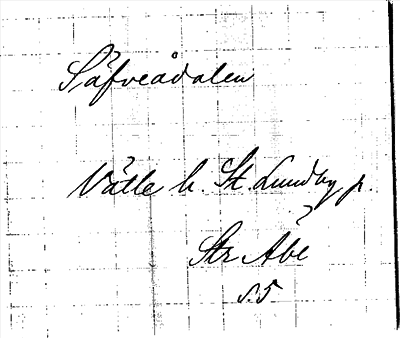 Säfveådalen
Välle h. St. Lundby p.
Str Åbl
s. 5